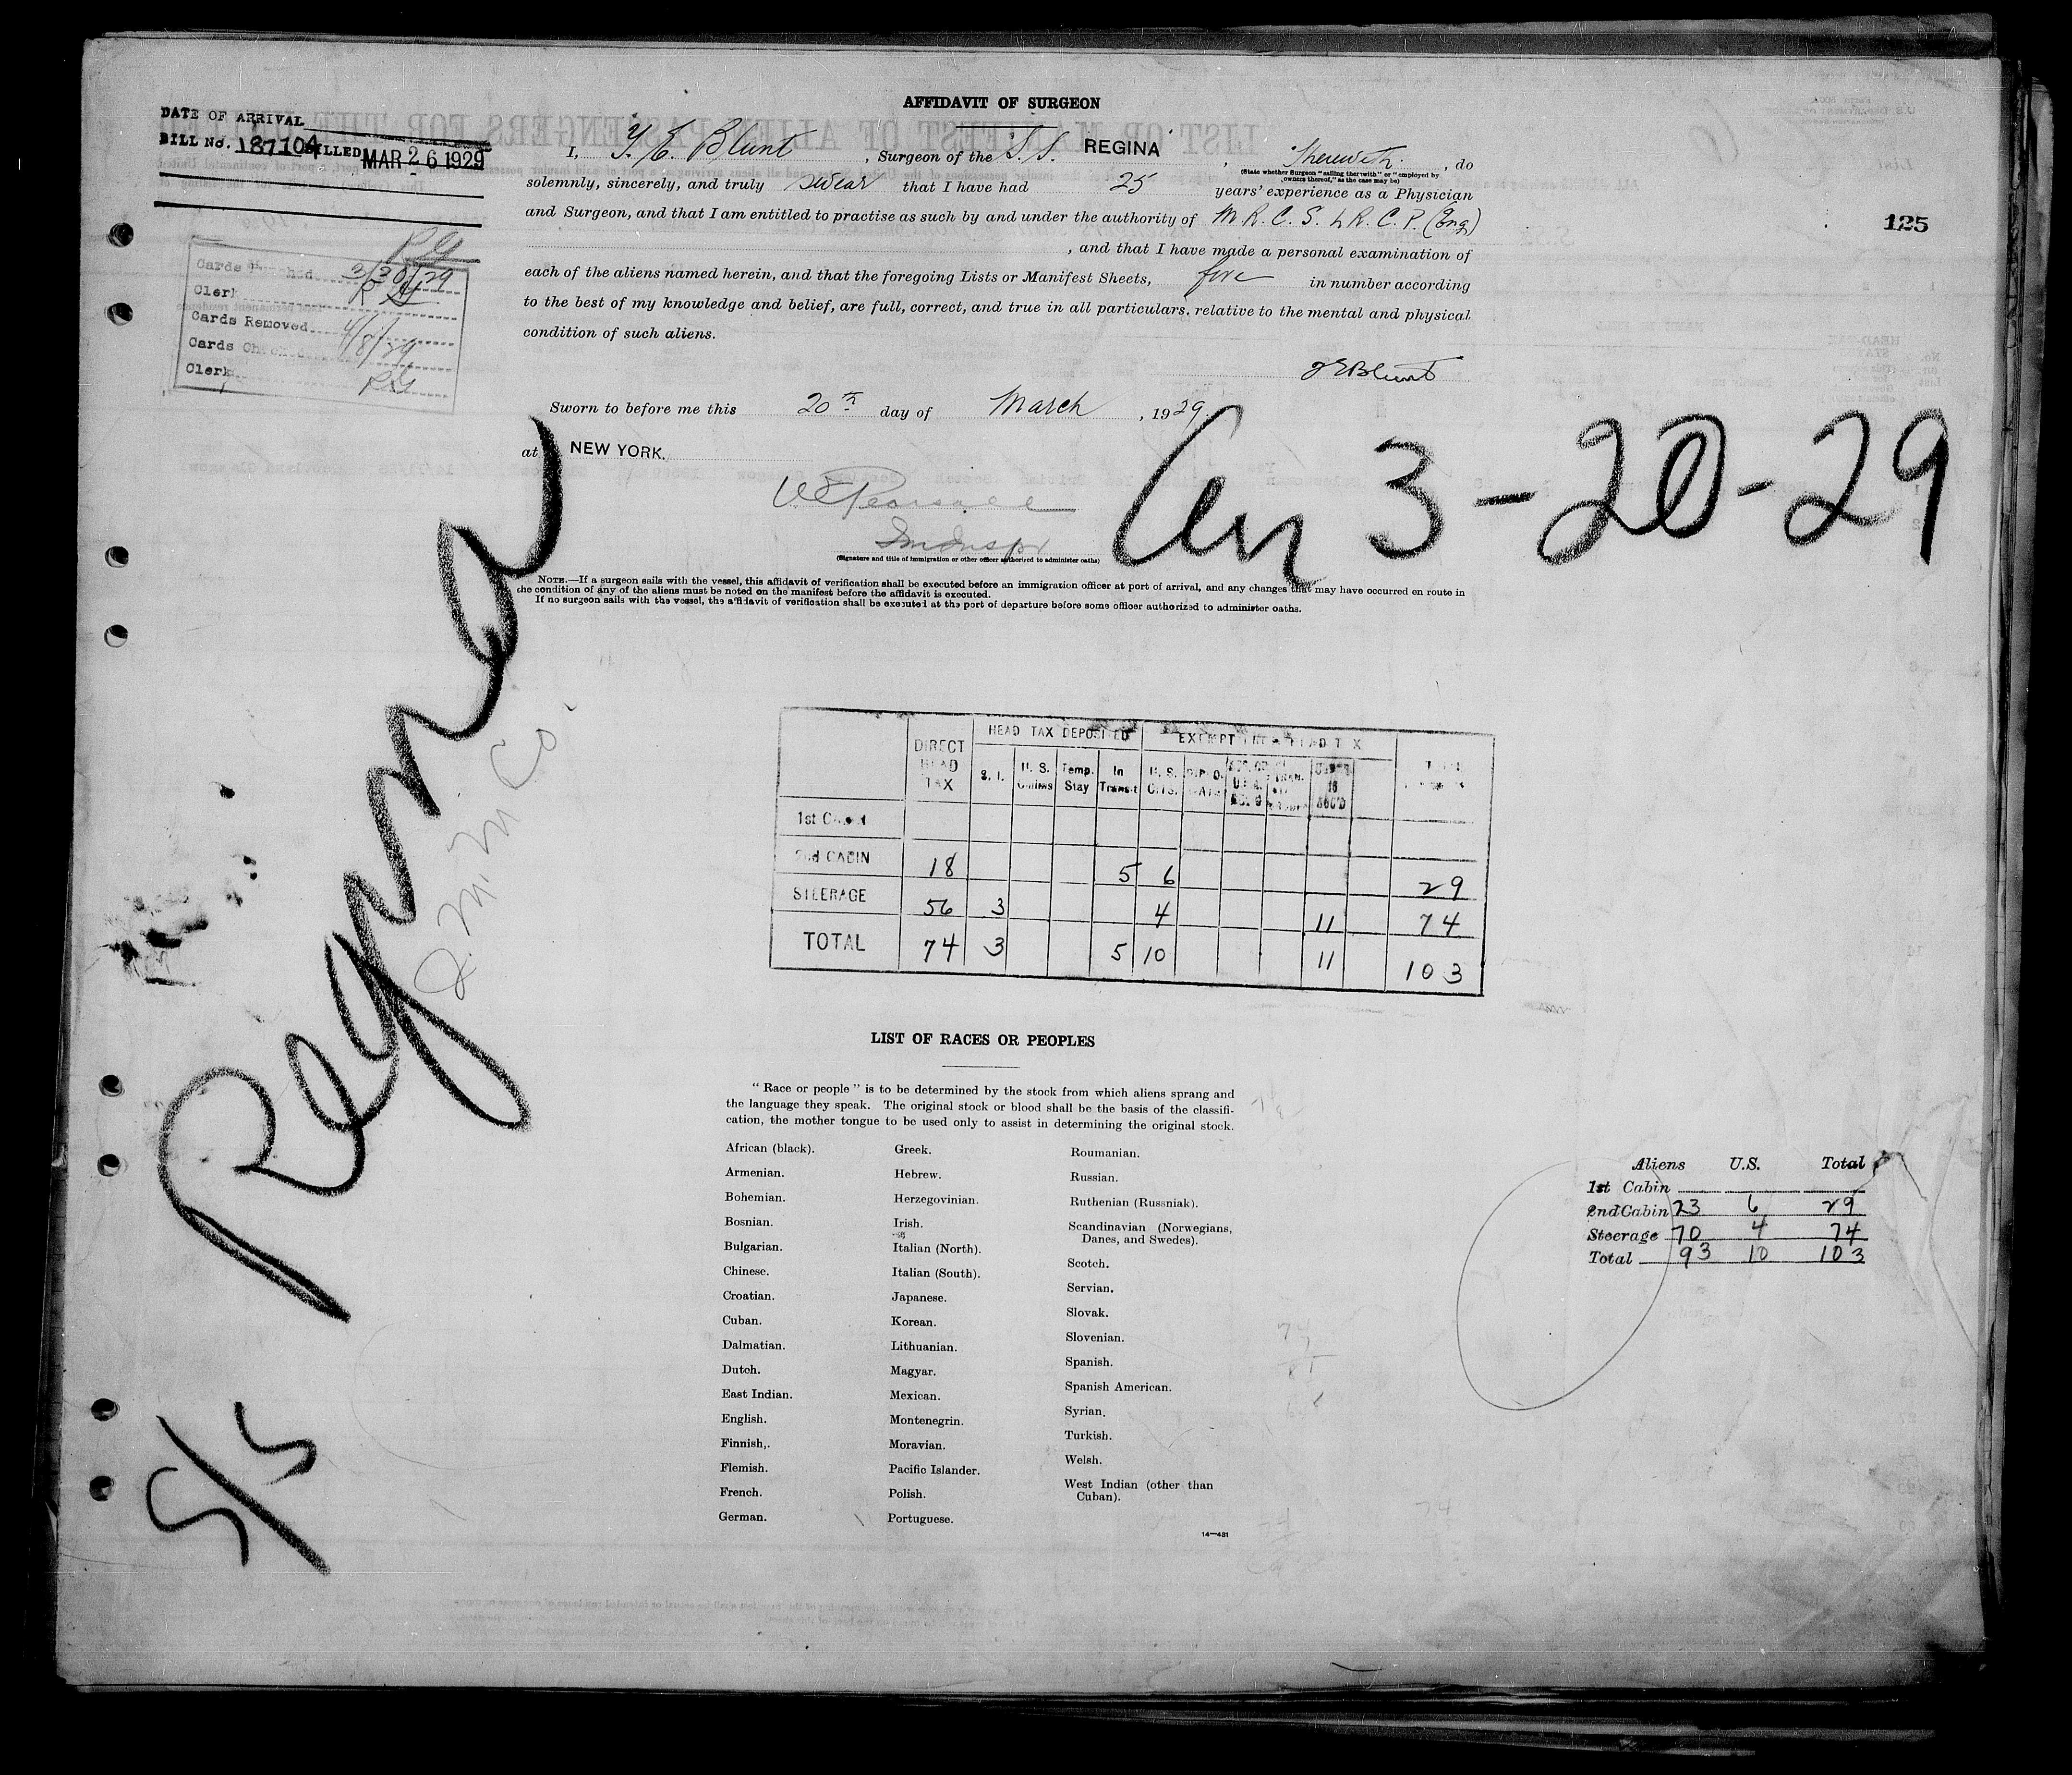 AFFIDAVIT OF SURGEON
DATE OF ARRIVAL
BILL No. 187104 BILLED MAR 26 1929
125
I, Y. E. Blunt, Surgeon of the S.S. REGINA, Therewith, do
(State whether Surgeon "sailing therewith" or "employed by
owners thereof," as the case may be)
solemnly, sincerely, and truly swear that I have had 25 years' experience as a Physician
and Surgeon, and that I am entitled to practise as such by and under the authority of M.R.C.S. L.R.C.P. (Eng)
, and that I have made a personal examination of
each of the aliens named herein, and that the foregoing Lists or Manifest Sheets, five in number according
to the best of my knowledge and belief, are full, correct, and true in all particulars, relative to the mental and physical
condition of such aliens.
Blunt
Sworn to before me this 20th day of March, 1929
at NEW YORK.
Pearsall
(Signature and title of immigration or other officer authorized to administer oaths)
RG
Cards Punched 3/20/29
Clerk
Cards Removed 4/8/29
Cards Checked
Clerk RG
3-20-29
Regina
I.M.M.Co.
S/S
NOTE.—If a surgeon sails with the vessel, this affidavit of verification shall be executed before an immigration officer at port of arrival, and any changes that may have occurred on route in
the condition of any of the aliens must be noted on the manifest before the affidavit is executed.
If no surgeon sails with the vessel, the affidavit of verification shall be executed at the port of departure before some officer authorized to administer oaths.
DIRECT HEAD TAX
HEAD TAX DEPOSITED
EXEMPT FROM HEAD TAX
S. I. U. S. Claims Temp. Stay In Transit U. S. CITS.
1st Cabin
2nd CABIN 18 5 6 29
STEERAGE 56 3 4 11 74
TOTAL 74 3 5 10 11 103
LIST OF RACES OR PEOPLES
"Race or people" is to be determined by the stock from which aliens sprang and
the language they speak. The original stock or blood shall be the basis of the classifi-
cation, the mother tongue to be used only to assist in determining the original stock.
African (black).
Armenian.
Bohemian.
Bosnian.
Bulgarian.
Chinese.
Croatian.
Cuban.
Dalmatian.
Dutch.
East Indian.
English.
Finnish,.
Flemish.
French.
German.
Greek.
Hebrew.
Herzegovinian.
Irish.
Italian (North).
Italian (South).
Japanese.
Korean.
Lithuanian.
Magyar.
Mexican.
Montenegrin.
Moravian.
Pacific Islander.
Polish.
Portuguese.
Roumanian.
Russian.
Ruthenian (Russniak).
Scandinavian (Norwegians,
Danes, and Swedes).
Scotch.
Servian.
Slovak.
Slovenian.
Spanish.
Spanish American.
Syrian.
Turkish.
Welsh.
West Indian (other than
Cuban).
14—431
Aliens U.S. Total
1st Cabin
2nd Cabin 23 6 29
Steerage 70 4 74
Total 93 10 103